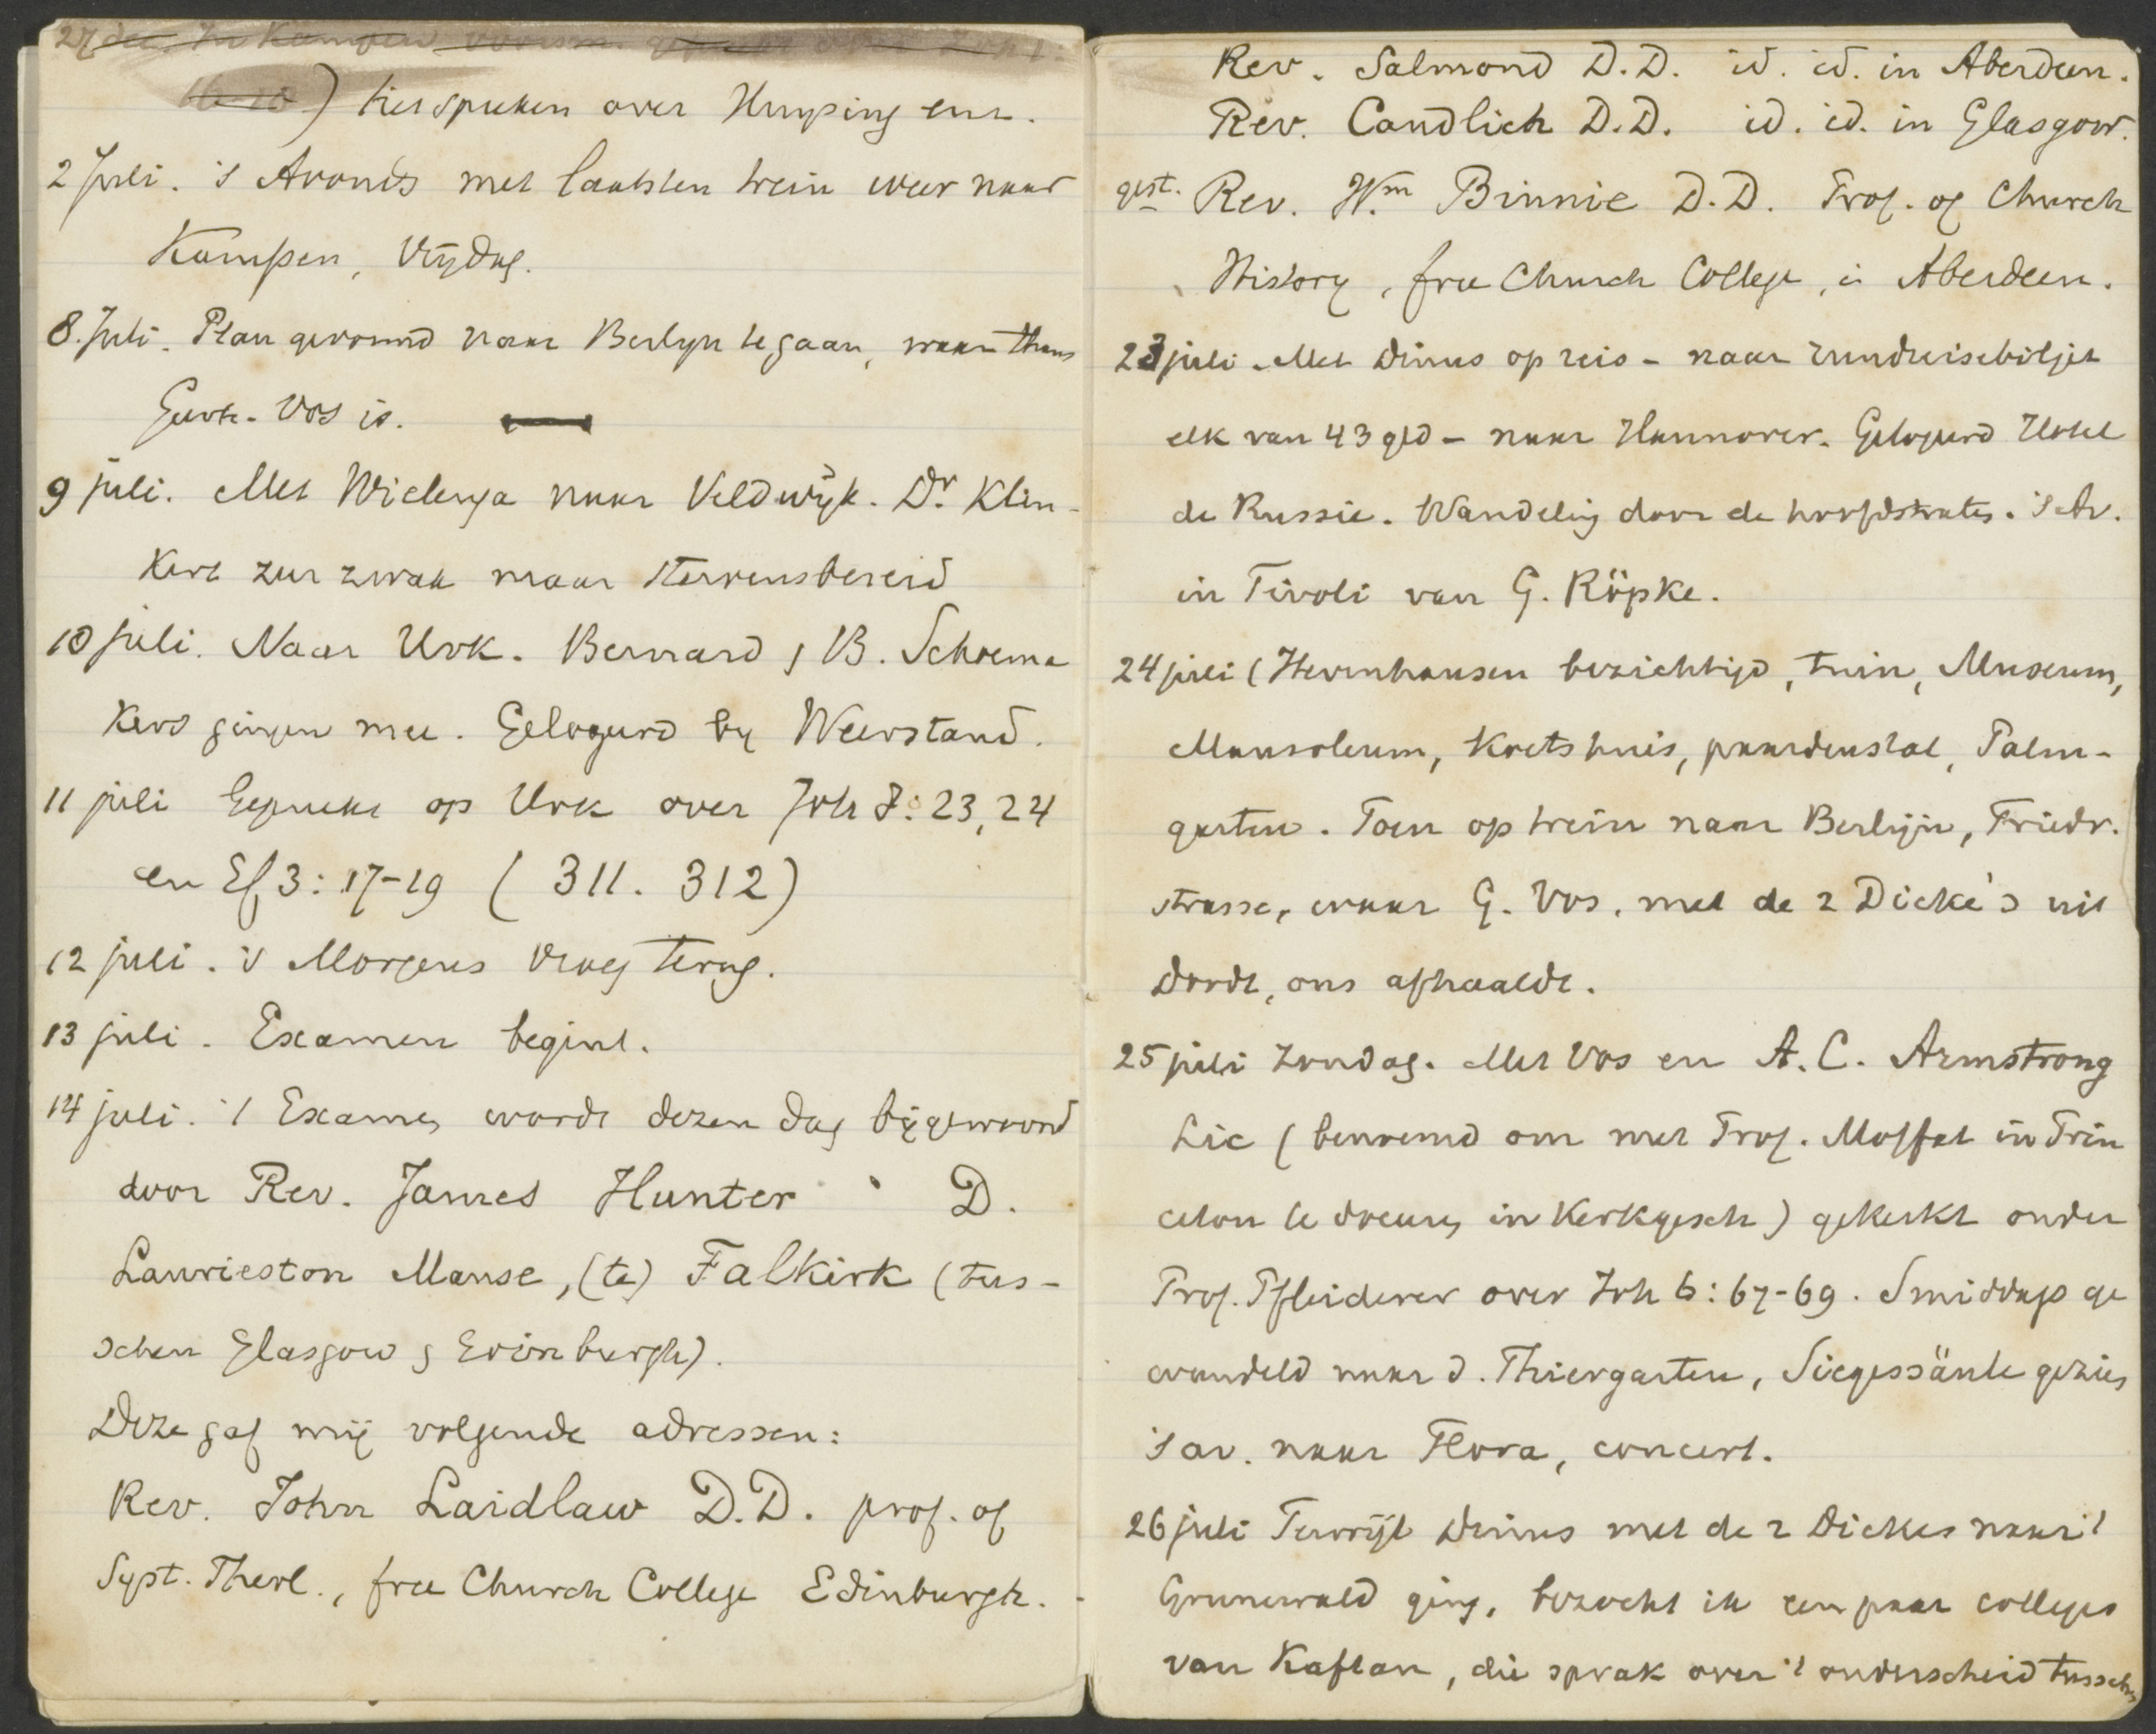 27 dec. In Kampen voorm.
) het spreken over Huizing enz.
2 Juli. 's Avonds met laatsten trein weer naar
Kampen, Vrydag.
8. Juli. Plan gevormd naar Berlyn te gaan, waar thans
Geerh. Vos is.
9 juli. Met Wielenga naar Veldwijk. Dr. Klin-
kert zeer zwak maar stervensbereid
10 juli. Naar Urk. Bernard & B. Schoema
kers gingen mee. Gelogeerd by Weerstand.
11 juli Gepreekt op Urk over Joh 8: 23, 24
en Ef 3: 17-19 ( 311. 312)
12 juli. 's Morgens vroeg terug.
13 juli. Examen begint.
14 juli. 't Examen wordt dezen dag bijgewoond
door Rev. James Hunter D.
Laurieston Manse, (te) Falkirk (tus-
schen Glasgow & Edinburgh).
Deze gaf mij volgende adressen:
Rev. John Laidlaw D.D. prof. of
Syst. Theol., free Church College Edinburgh.
Rev. Salmond D.D. id. id. in Aberdeen.
Rev. Candlich D.D. id. id. in Glasgow.
gest. Rev. Wm Binnie D.D. Prof. of Church
History, free Church College, in Aberdeen.
23 juli. Met Dinus op reis - naar rundreisebiljet
elk van 43 gld - naar Hannover. Gelogeerd Hotel
de Russie. Wandeling door de hoofdstraten. 's Av.
in Tivoli van G. Röpke.
24 juli (Herrnhausen bezichtigd, tuin, Museum,
Mausoleum, Koetshuis, paardenstal, Palm-
garten. Toen op trein naar Berlijn, Friedr.
strasse, waar G. Vos, met de 2 Dicke's uit
Dordt, ons afhaalde.
25 juli Zondag. Met Vos en A. C. Armstrong
Lic (benoemd om met Prof. Moffat in Prin
ceton te doceeren in Kerkgesch) gekerkt onder
Prof. Pfleiderer over Joh 6: 67-69. Smiddags ge
wandeld naar d. Thiergarten, Siegessäule gezien
's av. naar Flora, concert.
26 juli Terwijl Dinus met de 2 Dickes naar 't
Grunewald ging, bezocht ik een paar colleges
van Kaftan, die sprak over 't onderscheid tusschen